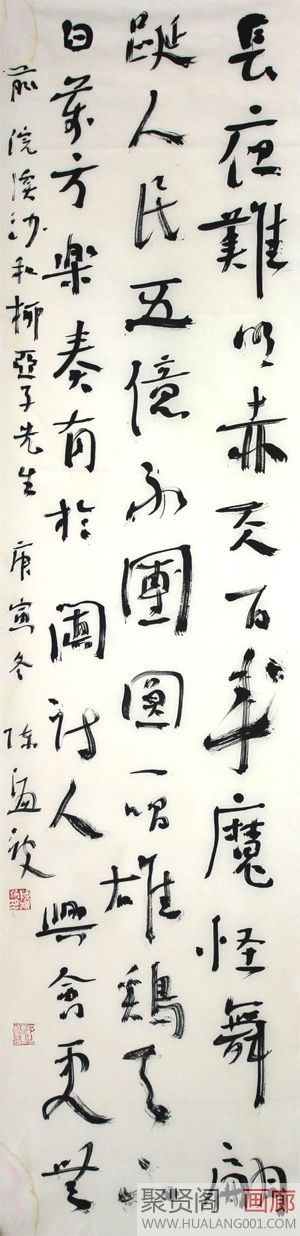 長夜難明赤天百年魔怪舞翩
躚人民五億不團圓一唱雄鷄天下
白萬方樂奏有於闐詩人興會更無
前 浣溪沙和柳亞子先生 庚寅冬 陳
聚贤阁 画廊
WWW.HUALANG001.COM